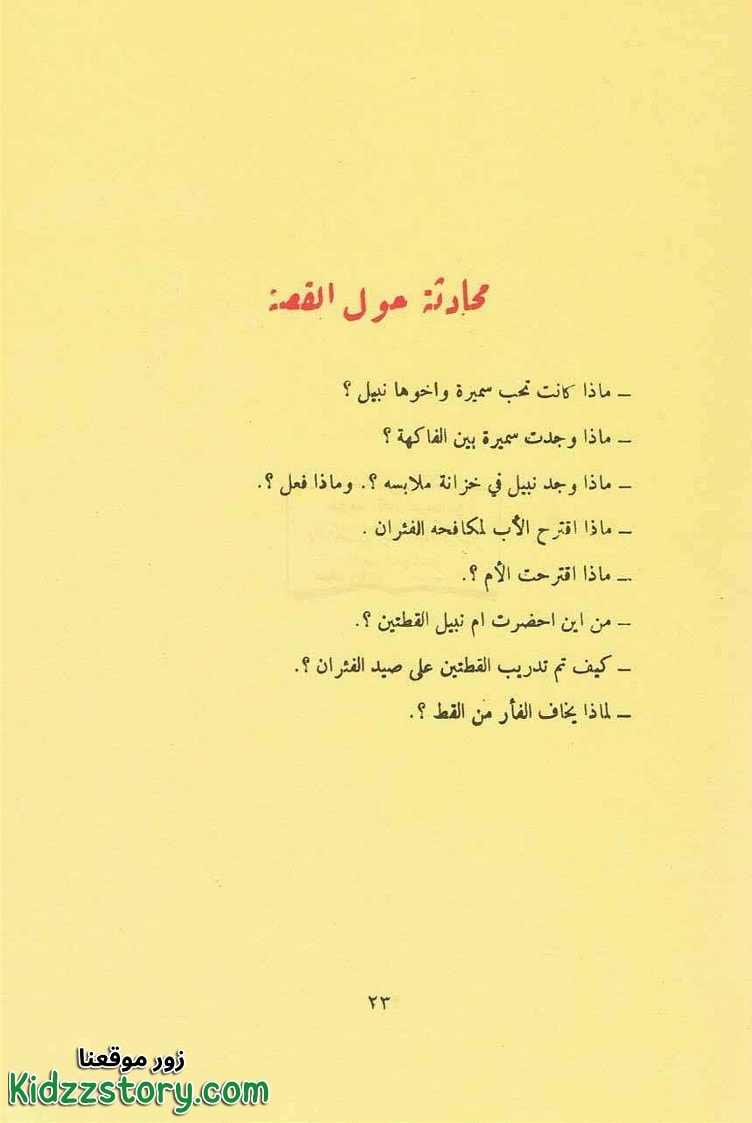 محادثة حول القصة
– ماذا كانت تحب سميرة واخوها نبيل ؟
– ماذا وجدت سميرة بين الفاكهة ؟
– ماذا وجد نبيل في خزانة ملابسه ؟. وماذا فعل ؟.
– ماذا اقترح الأب لمكافحه الفئران .
– ماذا اقترحت الأم ؟.
– من اين احضرت ام نبيل القطتين ؟.
– كيف تم تدريب القطتين على صيد الفئران ؟.
– لماذا يخاف الفأر من القط ؟.
٢٣
زور موقعنا
Kidzzstory.com